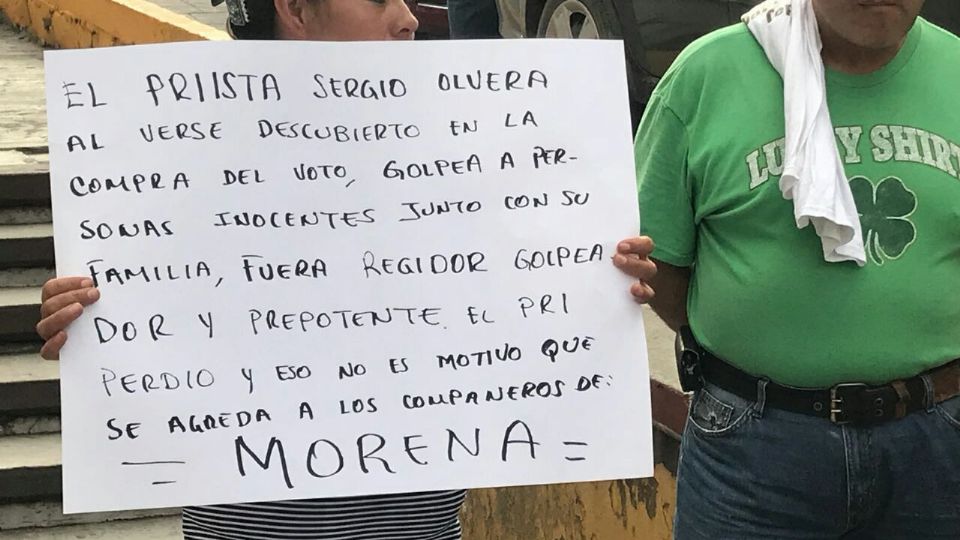 EL PRIISTA SERGIO OLVERA
AL VERSE DESCUBIERTO EN LA
COMPRA DEL VOTO, GOLPEA A PER-
SONAS INOCENTES JUNTO CON SU
FAMILIA, FUERA REGIDOR GOLPEA
DOR Y PREPOTENTE. EL PRI
PERDIO Y ESO NO ES MOTIVO QUE
SE AGREDA A LOS COMPAÑEROS DE:
= MORENA =
SHIRT